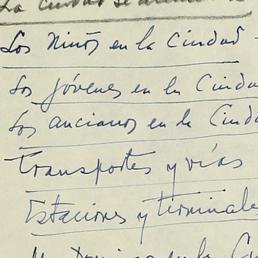 La Ciudad se
Los Niños en la Ciudad -
Los jóvenes en la Ciuda
Los ancianos en la Ciuda
Transportes y vías
Estaciones y terminales
Domingo en la